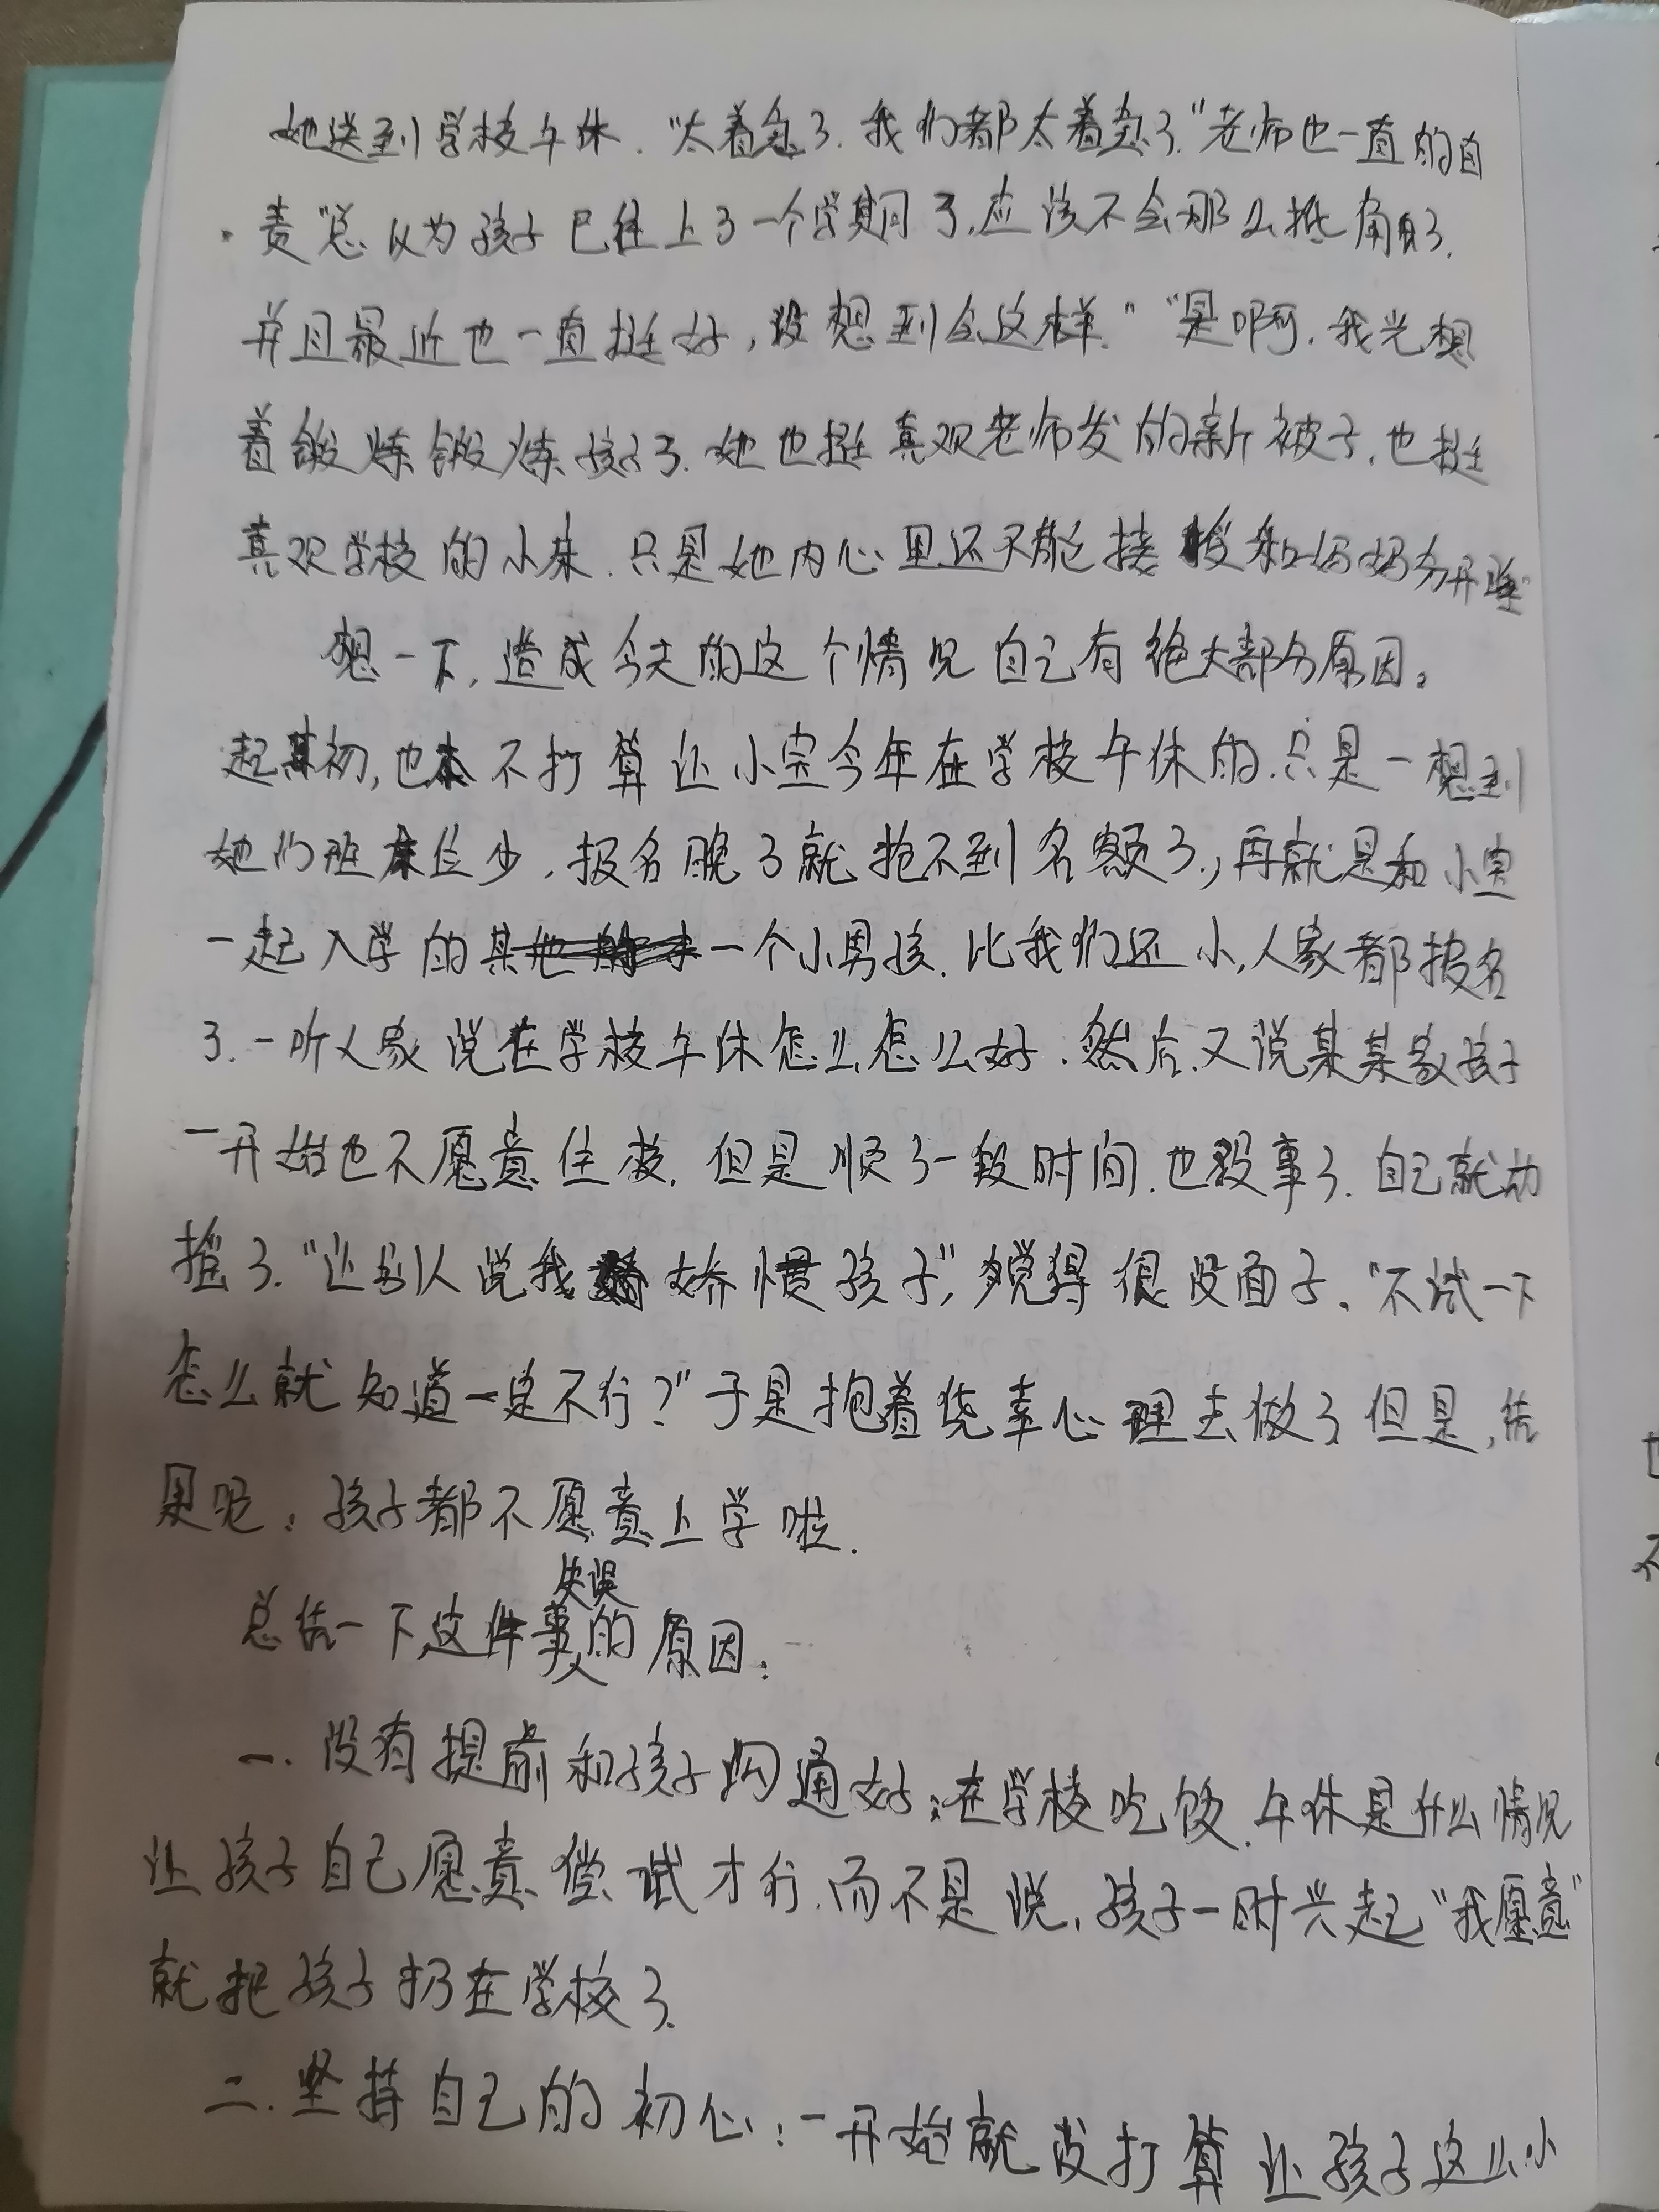 她送到学校午休."太着急了.我们都太着急了."老师也一直的自
责"总以为孩子已经上了一个学期了,应该不会那么抵触了.
并且最近也一直挺好,没想到会这样.""是啊.我光想
着锻炼锻炼孩子了.她也挺喜欢老师发的新被子,也挺
喜欢学校的小床.只是她内心里还不能接受和妈妈分开睡"
想一下,造成今天的这个情况自己有绝大部分原因。
起初,也不打算让小宝今年在学校午休的.只是一想到
她们班床位少,报名晚了就抢不到名额了,再就是和小宝
一起入学的一个小男孩.比我们还小,人家都报名
了.一听人家说在学校午休怎么怎么好.然后又说某某家孩子
一开始也不愿意住校,但是顺了一段时间.也没事了.自己就动
摇了."让别人说我娇惯孩子",觉得很没面子。"不试一下
怎么就知道一定不行?"于是抱着侥幸心理去做了但是,结
果呢:孩子都不愿意上学啦.
总结一下这件事失误的原因:
一.没有提前和孩子沟通好:在学校吃饭.午休是什么情况
让孩子自己愿意偿试才行.而不是说,孩子一时兴起"我愿意"
就把孩子扔在学校了.
二.坚持自己的初心:一开始就没打算让孩子这么小